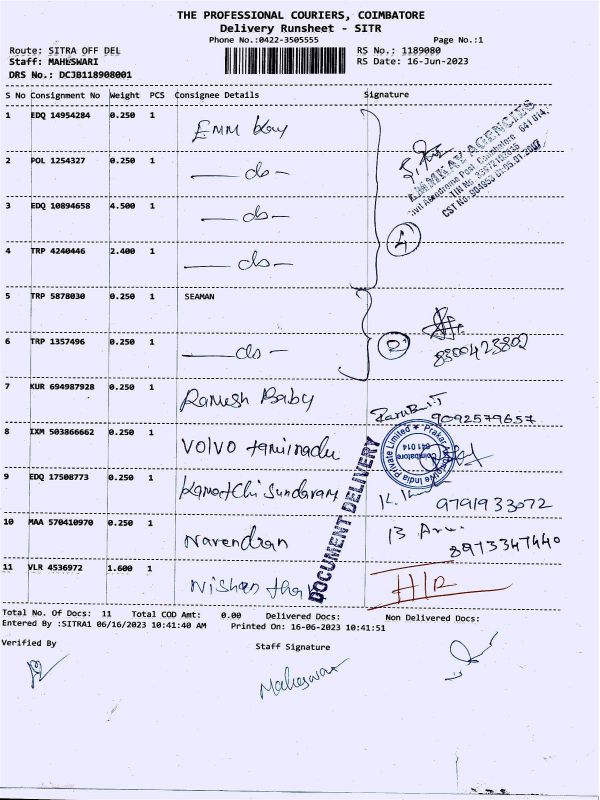 THE PROFESSIONAL COURIERS, COIMBATORE
Delivery Runsheet - SITR
Phone No.:0422-3505555 Page No.:1
Route: SITRA OFF DEL RS No.: 1189080
Staff: MAHESWARI RS Date: 16-Jun-2023
DRS No.: DCJB118908001
S No Consignment No Weight PCS Consignee Details Signature
1 EDQ 14954284 0.250 1 Emm Kay
EMMKAY AGENCIES
Civil Aerodrome Post, Coimbatore - 641 014.
2 POL 1254327 0.250 1 — do —
3 EDQ 10894658 4.500 1 — do —
4
4 TRP 4240446 2.400 1 — do —
5 TRP 5878030 0.250 1 SEAMAN
6 TRP 1357496 0.250 1 — do — 2 8300423802
7 KUR 694987928 0.250 1 Ramesh Baby
9092579657
8 IXM 503866662 0.250 1 Volvo tamilnadu
Private Limited
Coimbatore
641 014
9 EDQ 17508773 0.250 1 Kamatchi Sundaram 9791933072
10 MAA 570410970 0.250 1 Narendran 8973347440
DOCUMENT DELIVERY
11 VLR 4536972 1.600 1 Nishan H/R
Total No. Of Docs: 11 Total COD Amt: 0.00 Delivered Docs: Non Delivered Docs:
Entered By :SITRA1 06/16/2023 10:41:40 AM Printed On: 16-06-2023 10:41:51
Verified By Staff Signature
Maheswari